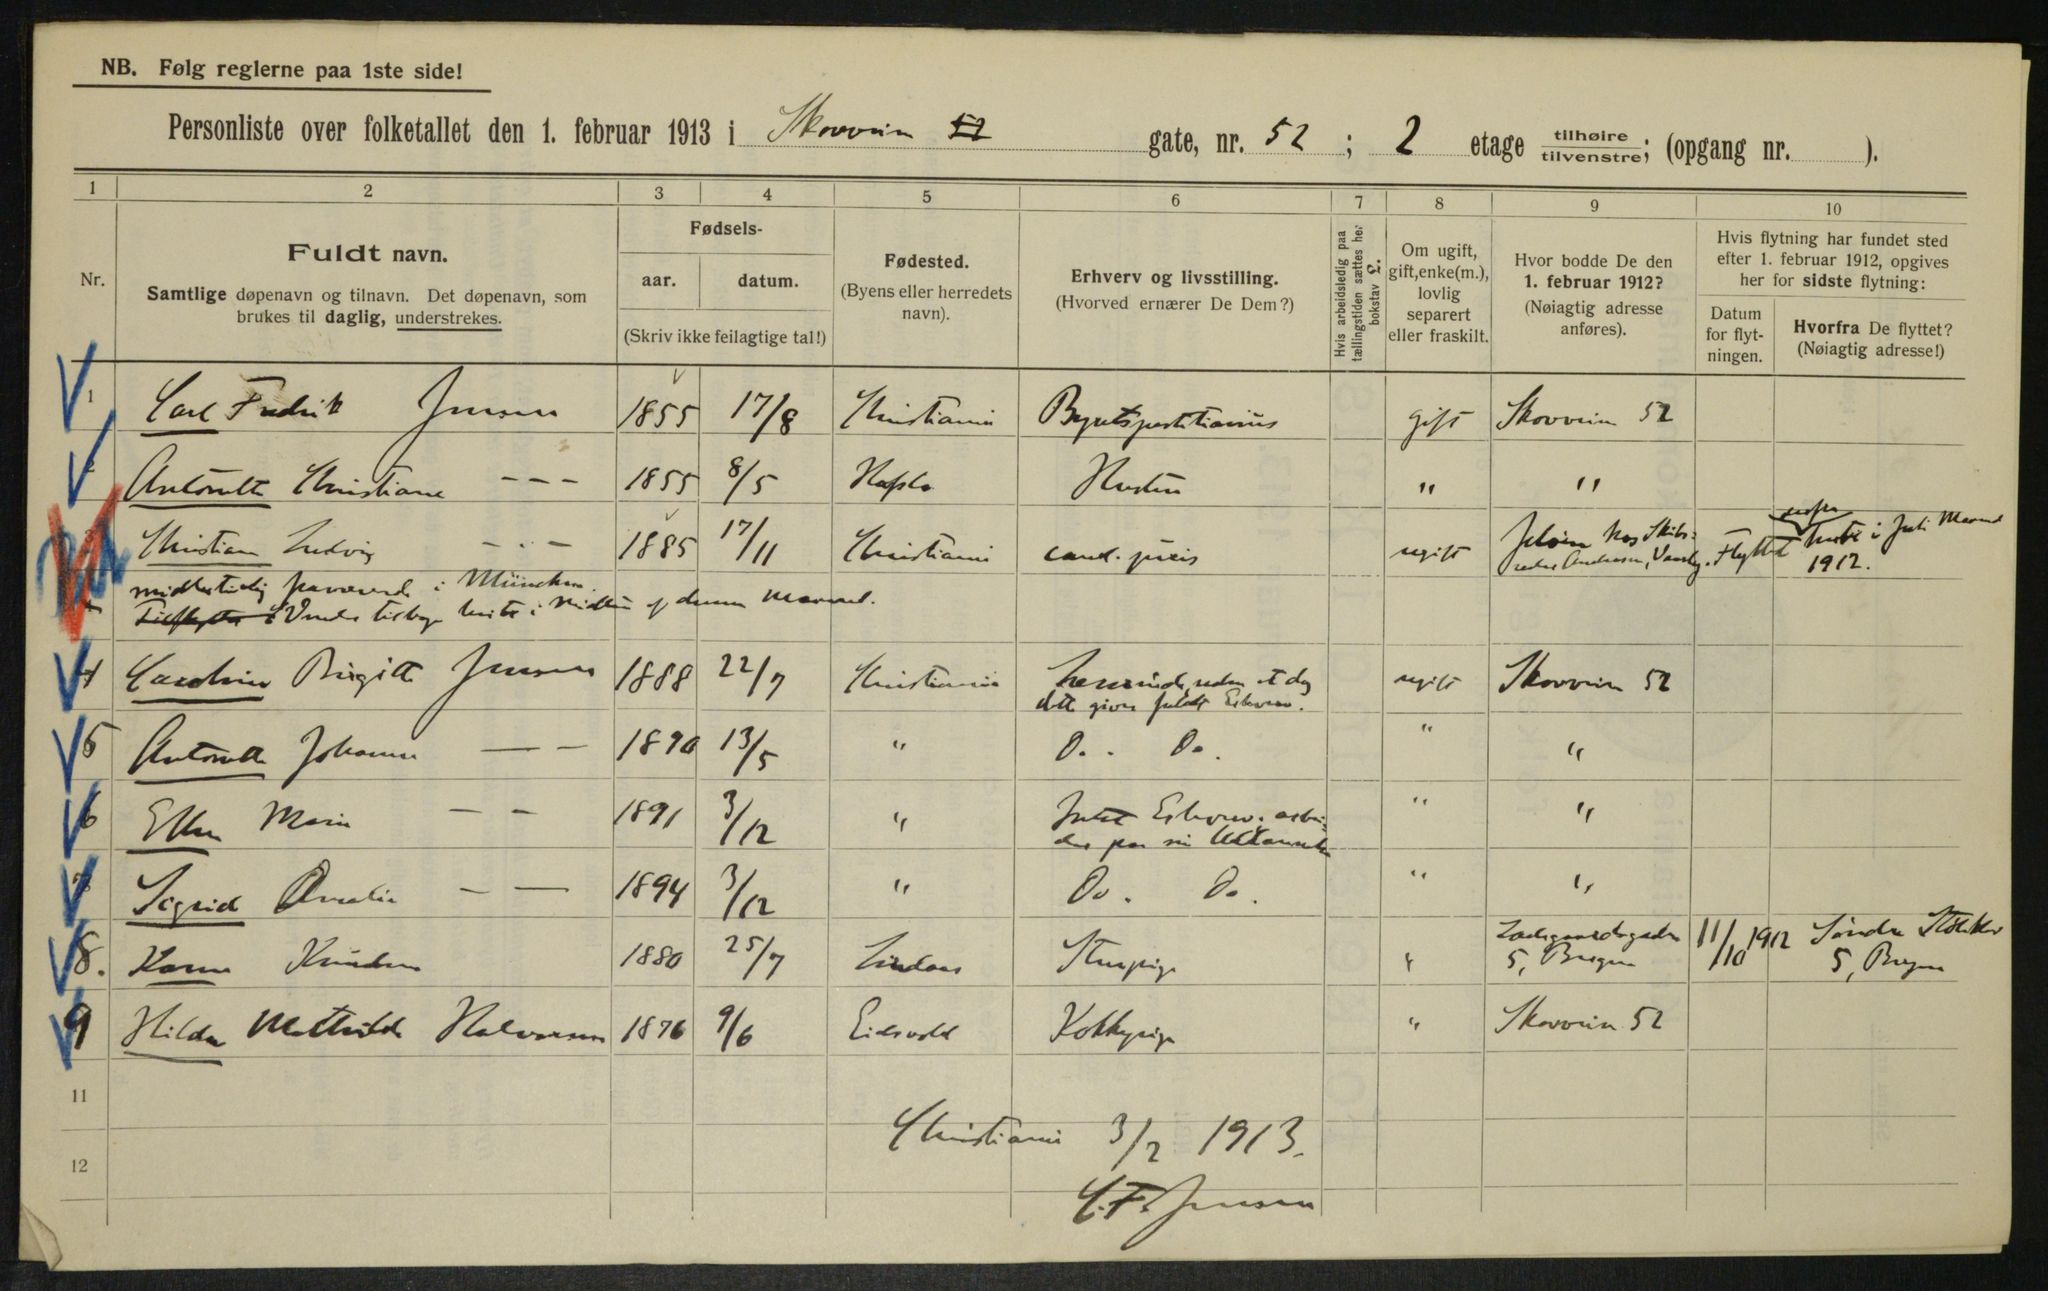 NB. Følg reglerne paa 1ste side!
Personliste over folketallet den 1. februar 1913 i Skovvein 52 gate, nr. 52 ; 2 etage tilhøire tilvenstre; (opgang nr. ).
1 2 3 4 5 6 7 8 9 10
Nr.
Fuldt navn.
Samtlige døpenavn og tilnavn. Det døpenavn, som
brukes til daglig, understrekes.
Fødsels-
aar. datum.
(Skriv ikke feilagtige tal!)
Fødested.
(Byens eller herredets
navn).
Erhverv og livsstilling.
(Hvorved ernærer De Dem?)
Hvis arbeidsledig paa
tællingstiden sættes her
bokstav L.
Om ugift,
gift, enke(m.),
lovlig
separert
eller fraskilt.
Hvor bodde De den
1. februar 1912?
(Nøiagtig adresse
anføres).
Hvis flytning har fundet sted
efter 1. februar 1912, opgives
her for sidste flytning:
Datum
for flyt-
ningen.
Hvorfra De flyttet?
(Nøiagtig adresse!)
1 Carl Fredrik Jensen 1855 17/8 Christiania Byretspartitiarius gift Skovvein 52
2 Antonette Christiane - - - 1855 8/5 Hafslo Hustru " "
3 Christian Ludvig - - - 1885 17/11 Christiania cand. juris ugift Jeløen hos Skibs-
reder Andresen, Vansjø. Flyttet hertil i Juli Maaned
1912.
midlertidig fraværende i München.
Vender tilbage hertil i Midten af denne Maaned.
4 Caroline Birgitte Jensen 1888 22/7 Christiania Lærerinde, uden at dog
dette giver fuldt Erhverv. ugift Skovvein 52
5 Antonette Johanne - - 1890 13/5 " Do. Do. " "
6 Ellen Marie - - 1891 3/12 " Intet Erhverv; arbei-
der paa sin Uddannelse " "
7 Sigrid Amalie - - 1894 3/12 " Do. Do. " "
8. Karen Knudsen 1880 25/7 Lindaas Stuepige " Ladegaardsgaden
5, Bergen 11/10 1912 Søndre
5, Bergen
9 Hilda Mathilde Halvorsen 1876 9/6 Eidsvold Kokkepige " Skovvein 52
11
12
Christiania 3/2 1913.
C. F. Jensen